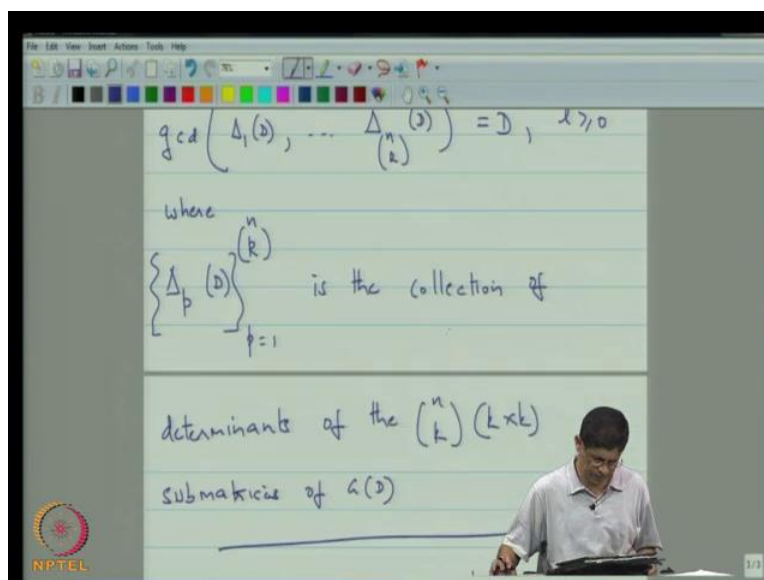 File Edit View Insert Actions Tools Help
gcd ( Δ₁(D), ... Δ_(n k) (D) ) = D, l ≥ 0
where
{ Δ_p (D) }_{p=1}^{(n k)} is the collection of
determinants of the (n k) (k × k)
submatrices of G(D)
NPTEL
3/3